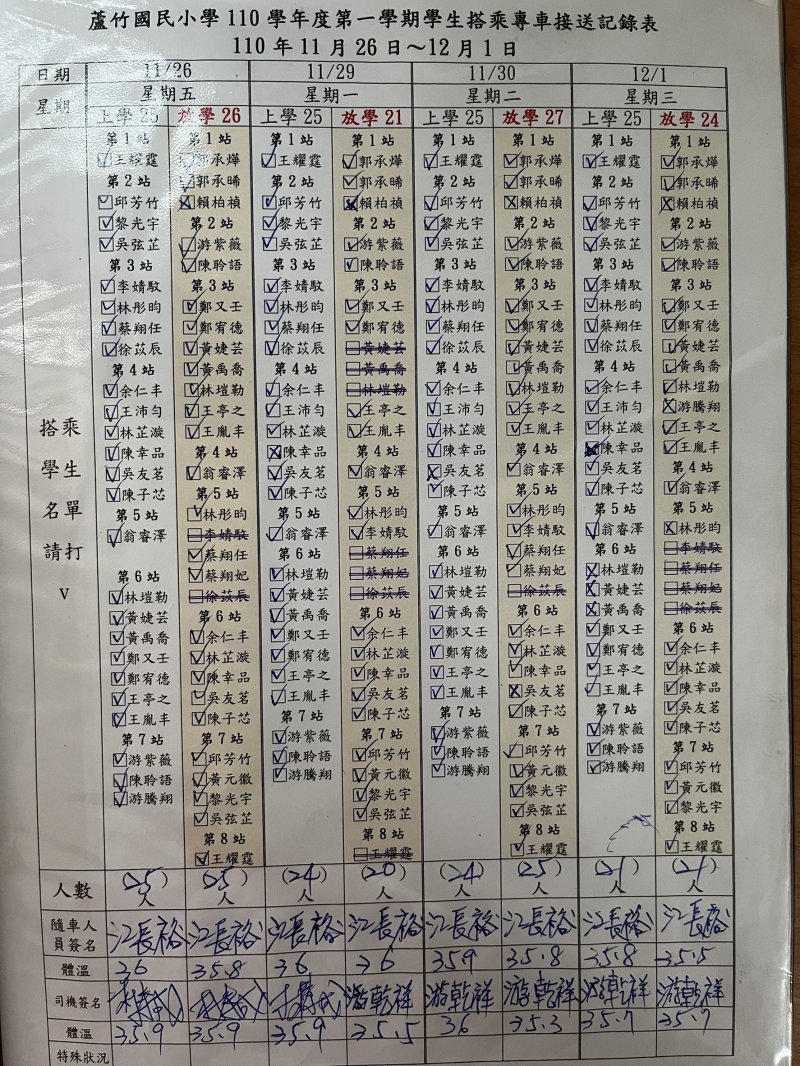 蘆竹國民小學 110 學年度第一學期學生搭乘專車接送記錄表
110 年 11 月 26 日～12 月 1 日
日期 11/26 11/29 11/30 12/1
星期 星期五 星期一 星期二 星期三
上學 25 放學 26 上學 25 放學 21 上學 25 放學 27 上學 25 放學 24
搭乘
學生
名單
請打
V
第 1 站
王耀霆
第 2 站
邱芳竹
黎光宇
吳弦芷
第 3 站
李婧馭
林彤昀
蔡翔任
徐苡辰
第 4 站
余仁丰
王沛勻
林芷漩
陳幸品
吳友茗
陳子芯
第 5 站
翁睿澤
第 6 站
林塏勒
黃婕芸
黃禹喬
鄭又壬
鄭宥德
王亭之
王胤丰
第 7 站
游紫薇
陳聆語
游騰翔
第 1 站
郭承燁
郭承晞
賴柏禎
第 2 站
游紫薇
陳聆語
第 3 站
鄭又壬
鄭宥德
黃婕芸
黃禹喬
林塏勒
王亭之
王胤丰
第 4 站
翁睿澤
第 5 站
林彤昀
李婧馭
蔡翔任
蔡翔妃
徐苡辰
第 6 站
余仁丰
林芷漩
陳幸品
吳友茗
陳子芯
第 7 站
邱芳竹
黃元徽
黎光宇
吳弦芷
第 8 站
王耀霆
第 1 站
王耀霆
第 2 站
邱芳竹
黎光宇
吳弦芷
第 3 站
李婧馭
林彤昀
蔡翔任
徐苡辰
第 4 站
余仁丰
王沛勻
林芷漩
陳幸品
吳友茗
陳子芯
第 5 站
翁睿澤
第 6 站
林塏勒
黃婕芸
黃禹喬
鄭又壬
鄭宥德
王亭之
王胤丰
第 7 站
游紫薇
陳聆語
游騰翔
第 1 站
郭承燁
郭承晞
賴柏禎
第 2 站
游紫薇
陳聆語
第 3 站
鄭又壬
鄭宥德
黃婕芸
黃禹喬
林塏勒
王亭之
王胤丰
第 4 站
翁睿澤
第 5 站
林彤昀
李婧馭
蔡翔任
蔡翔妃
徐苡辰
第 6 站
余仁丰
林芷漩
陳幸品
吳友茗
陳子芯
第 7 站
邱芳竹
黃元徽
黎光宇
吳弦芷
第 8 站
王耀霆
第 1 站
王耀霆
第 2 站
邱芳竹
黎光宇
吳弦芷
第 3 站
李婧馭
林彤昀
蔡翔任
徐苡辰
第 4 站
余仁丰
王沛勻
林芷漩
陳幸品
吳友茗
陳子芯
第 5 站
翁睿澤
第 6 站
林塏勒
黃婕芸
黃禹喬
鄭又壬
鄭宥德
王亭之
王胤丰
第 7 站
游紫薇
陳聆語
游騰翔
第 1 站
郭承燁
郭承晞
賴柏禎
第 2 站
游紫薇
陳聆語
第 3 站
鄭又壬
鄭宥德
黃婕芸
黃禹喬
林塏勒
王亭之
王胤丰
第 4 站
翁睿澤
第 5 站
林彤昀
李婧馭
蔡翔任
蔡翔妃
徐苡辰
第 6 站
余仁丰
林芷漩
陳幸品
吳友茗
陳子芯
第 7 站
邱芳竹
黃元徽
黎光宇
吳弦芷
第 8 站
王耀霆
第 1 站
王耀霆
第 2 站
邱芳竹
黎光宇
吳弦芷
第 3 站
李婧馭
林彤昀
蔡翔任
徐苡辰
第 4 站
余仁丰
王沛勻
林芷漩
陳幸品
吳友茗
陳子芯
第 5 站
翁睿澤
第 6 站
林塏勒
黃婕芸
黃禹喬
鄭又壬
鄭宥德
王亭之
王胤丰
第 7 站
游紫薇
陳聆語
游騰翔
第 1 站
郭承燁
郭承晞
賴柏禎
第 2 站
游紫薇
陳聆語
第 3 站
鄭又壬
鄭宥德
黃婕芸
黃禹喬
林塏勒
游騰翔
王亭之
王胤丰
第 4 站
翁睿澤
第 5 站
林彤昀
李婧馭
蔡翔任
蔡翔妃
徐苡辰
第 6 站
余仁丰
林芷漩
陳幸品
吳友茗
陳子芯
第 7 站
邱芳竹
黃元徽
黎光宇
吳弦芷
第 8 站
王耀霆
人數 (25)人 (25)人 (24)人 (20)人 (24)人 (25)人 (21)人 (21)人
隨車人
員簽名 江長裕 江長裕 江長裕 江長裕 江長裕 江長裕 江長裕 江長裕
體溫 36 35.8 36 36 359 35.8 35.8 35.5
司機簽名 游乾祥 游乾祥 游乾祥 游乾祥 游乾祥
體溫 35.9 35.9 35.9 35.5 36 35.3 35.7 35.7
特殊狀況